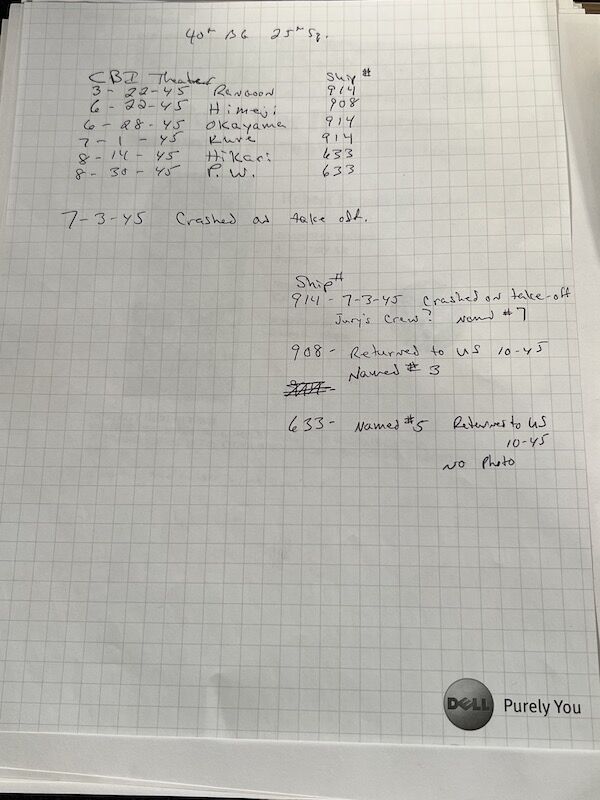 40th BG 25th Sq.
CBI Theater Ship #
3-22-45 Rangoon 914
6-22-45 Himeji 908
6-28-45 Okayama 914
7-1-45 Kure 914
8-14-45 Hikari 633
8-30-45 P.W. 633
7-3-45 Crashed on take off.
Ship #
914 - 7-3-45 Crashed on take-off
Jury's Crew? Named #7
908 - Returned to US 10-45
Named # 3
633 - Named #5 Returned to US
10-45
No Photo
DELL Purely You